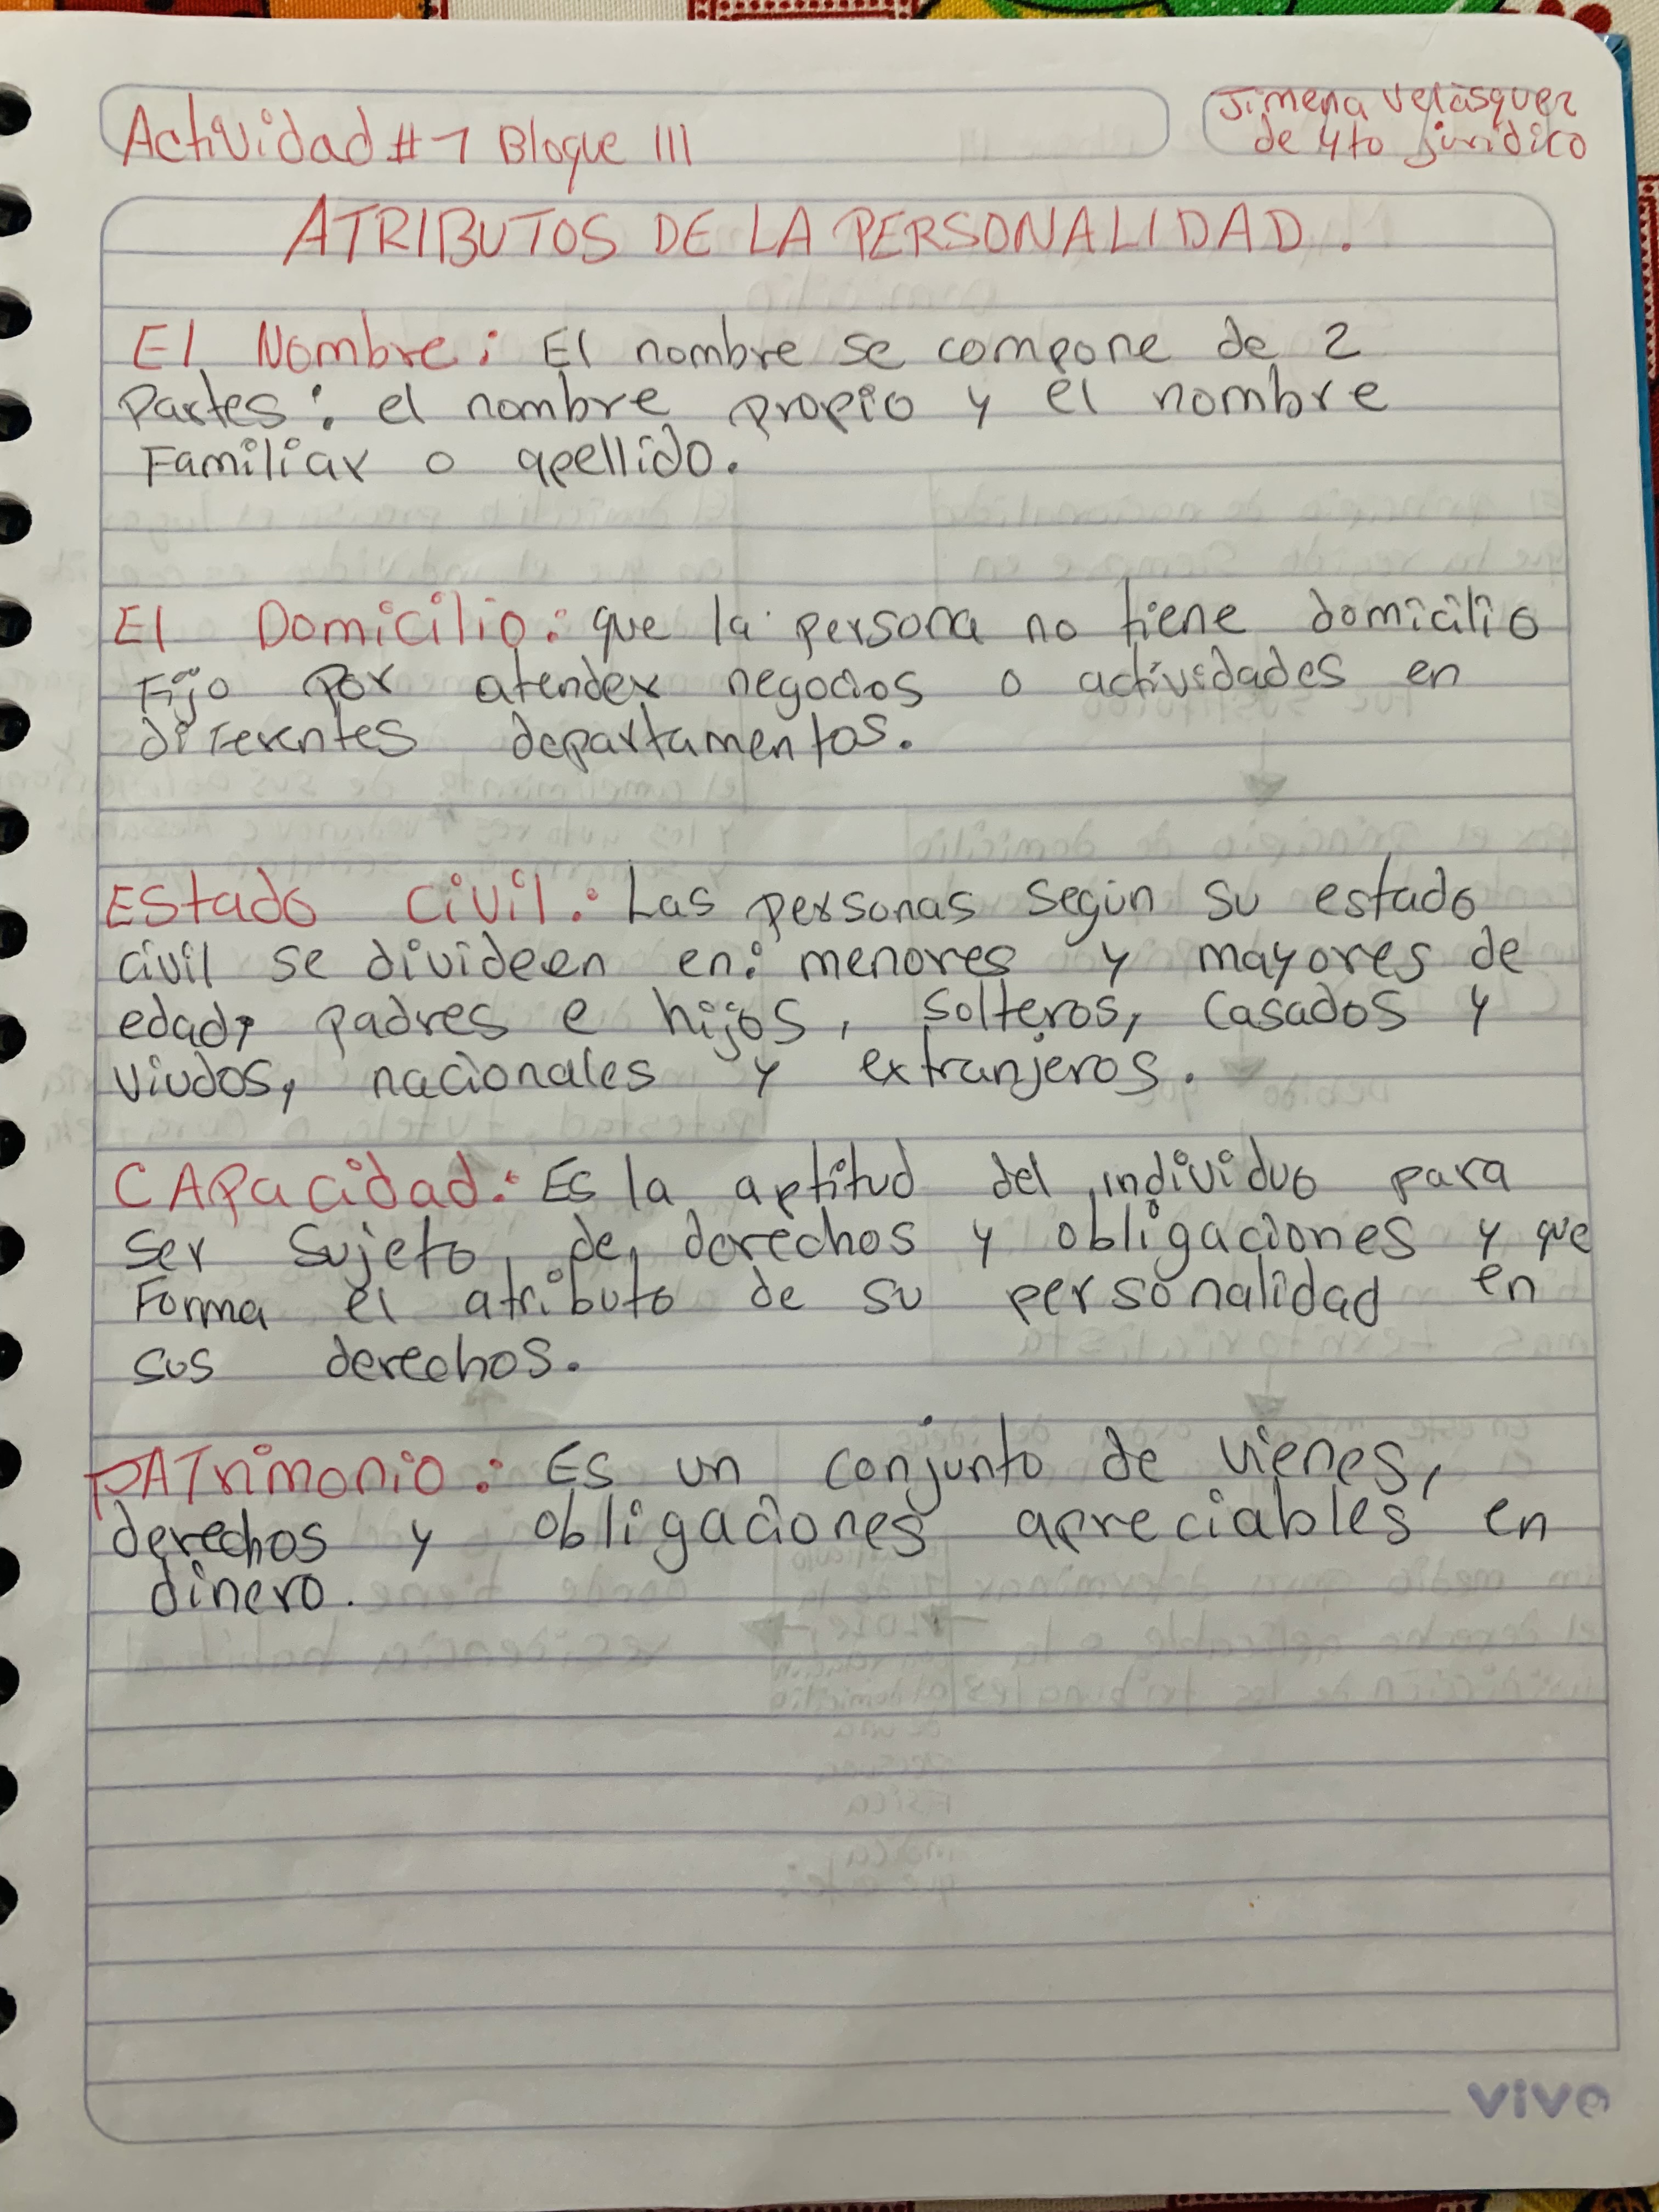 Actividad #1 Bloque III
Jimena Velásquez
de 4to jurídico
ATRIBUTOS DE LA PERSONALIDAD.
El Nombre: El nombre se compone de 2
Partes: el nombre propio y el nombre
Familiar o apellido.
El Domicilio: que la persona no tiene domicilio
Fijo por atender negocios o actividades en
diferentes departamentos.
Estado civil: Las personas según su estado
civil se divideen en: menores y mayores de
edad, padres e hijos, solteros, casados y
viudos, nacionales y extranjeros.
CAPacidad: Es la aptitud del individuo para
ser sujeto de derechos y obligaciones y que
Forma el atributo de su personalidad en
sus derechos.
PATrimonio: Es un conjunto de vienes,
derechos y obligaciones apreciables en
dinero.
vive